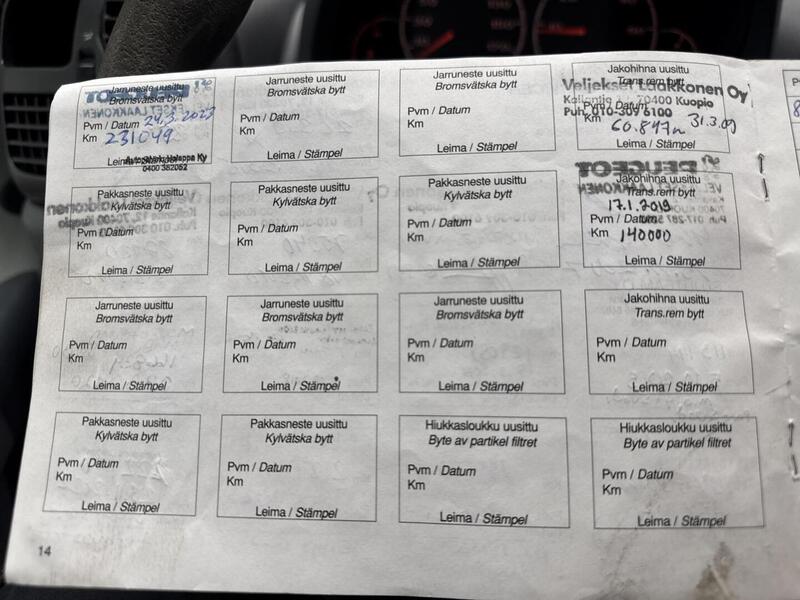 Jarruneste uusittu
Bromsvätska bytt
Pvm / Datum 24.3.2023
Km 231049
Leima / Stämpel
Autosähkö Halappa Ky
0400 382052
Jarruneste uusittu
Bromsvätska bytt
Pvm / Datum
Km
Leima / Stämpel
Jarruneste uusittu
Bromsvätska bytt
Pvm / Datum
Km
Leima / Stämpel
Jakohihna uusittu
Trans.rem bytt
Veljekset Laakkonen Oy
70400 Kuopio
Puh. 010-309 6100
Pvm / Datum 31.3.09
Km 60.847
Leima / Stämpel
Pakkasneste uusittu
Kylvätska bytt
Pvm / Datum
Km
Leima / Stämpel
Pakkasneste uusittu
Kylvätska bytt
Pvm / Datum
Km
Leima / Stämpel
Pakkasneste uusittu
Kylvätska bytt
Pvm / Datum
Km
Leima / Stämpel
PEUGEOT
Jakohihna uusittu
Trans.rem bytt
17.1.2019
Pvm / Datum
Km 140000
Leima / Stämpel
Jarruneste uusittu
Bromsvätska bytt
Pvm / Datum
Km
Leima / Stämpel
Jarruneste uusittu
Bromsvätska bytt
Pvm / Datum
Km
Leima / Stämpel
Jarruneste uusittu
Bromsvätska bytt
Pvm / Datum
Km
Leima / Stämpel
Jakohihna uusittu
Trans.rem bytt
Pvm / Datum
Km
Leima / Stämpel
Pakkasneste uusittu
Kylvätska bytt
Pvm / Datum
Km
Leima / Stämpel
Pakkasneste uusittu
Kylvätska bytt
Pvm / Datum
Km
Leima / Stämpel
Hiukkasloukku uusittu
Byte av partikel filtret
Pvm / Datum
Km
Leima / Stämpel
Hiukkasloukku uusittu
Byte av partikel filtret
Pvm / Datum
Km
Leima / Stämpel
14